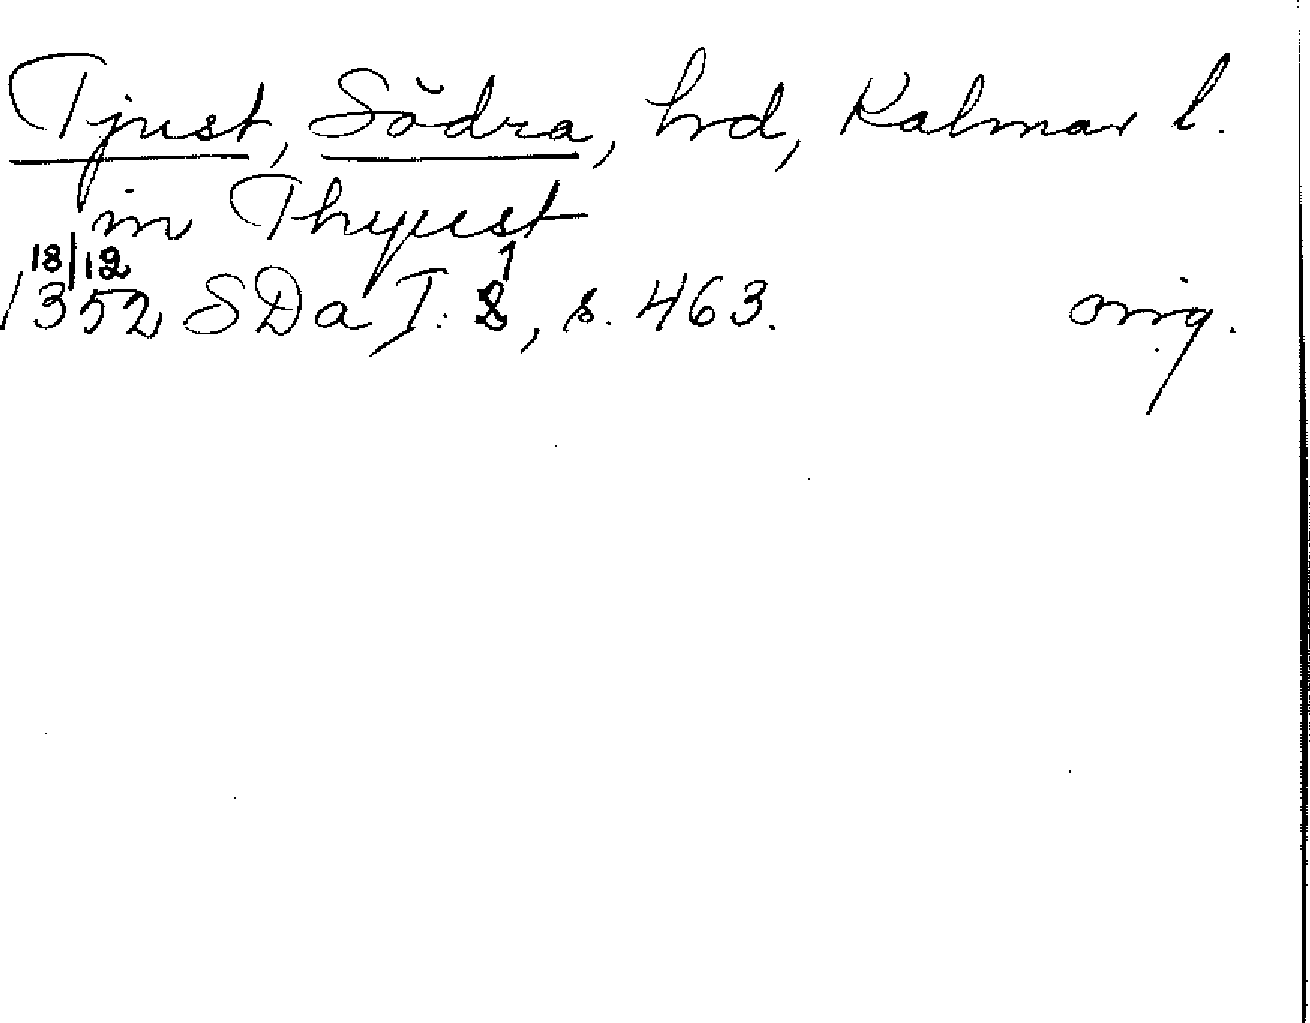 Tjust, Södra, hrd, Kalmar l.
in Thyust
18/12 1
1352 SDa I: 8, s. 463. orig.